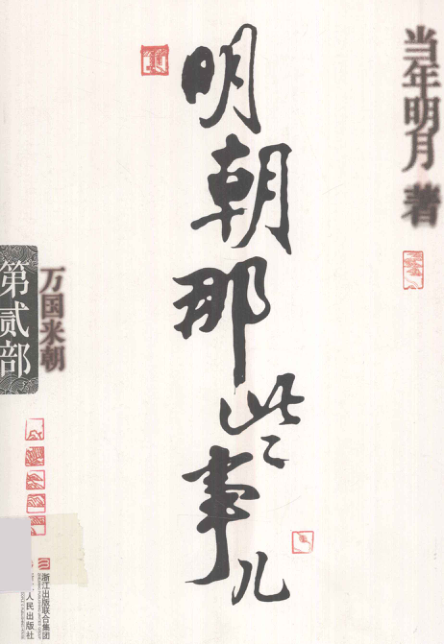 当年明月 著
明朝那些事儿
第贰部
万国来朝
浙江出版联合集团
人民出版社